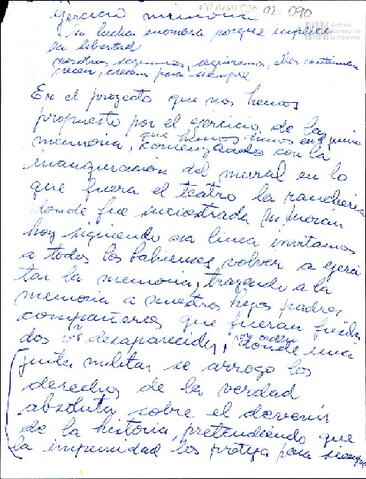 02.090
Archivo
Nacional de
la Memoria
ejercicio memoria
Su lucha moñora porque
su libertad
nosotros seguimos, seguiremos, ellos continúan
crecen, crecen para siempre
En el proyecto que nos hemos
propuesto por el ejercicio de la
memoria, que hemos
comenzado con la
inauguración del mural en lo
que fuera el teatro la rancheria
donde fue secuestrada
hoy siguiendo esa linea invitamos
a todos los a volver a ejerci
tar la memoria, trayendo a la
memoria a nuestros hijos padres
compañeros que fueran fusila
dos o desaparecidos, donde una
junta militar se arrogo los
derechos de la verdad
absoluta sobre el devenir
de la historia, pretendiendo que
la impunidad los proteja para siempre